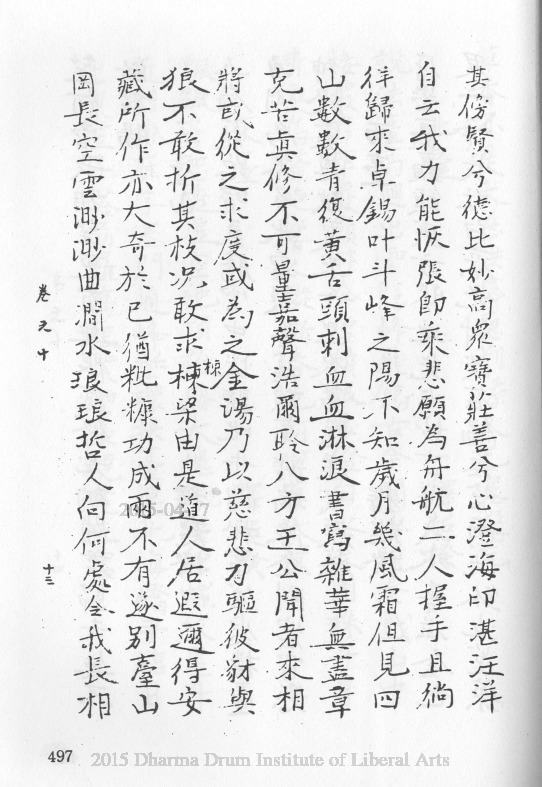 其傍賢兮德比妙高衆寶莊善兮心澄海印湛汪洋
自云我力能恢張即乘悲願為舟航二人握手且徜
徉歸來卓錫叶斗峰之陽不知歲月幾風霜但見四
山數數青復黃舌頭刺血血淋浪書寫雜華無盡章
克苦真修不可量嘉聲浩爾聆八方王公聞者來相
將或從之求度或為之金湯乃以慈悲力驅彼豺與
狼不敢折其枝况敢求棟梁由是道人居遐邇得安
棟
藏所作亦大奇於已猶粃糠功成兩不有遂別臺山
岡長空雲渺渺曲澗水琅琅哲人向何處令我長相
卷九十
十三
2015-04-07
497
2015 Dharma Drum Institute of Liberal Arts